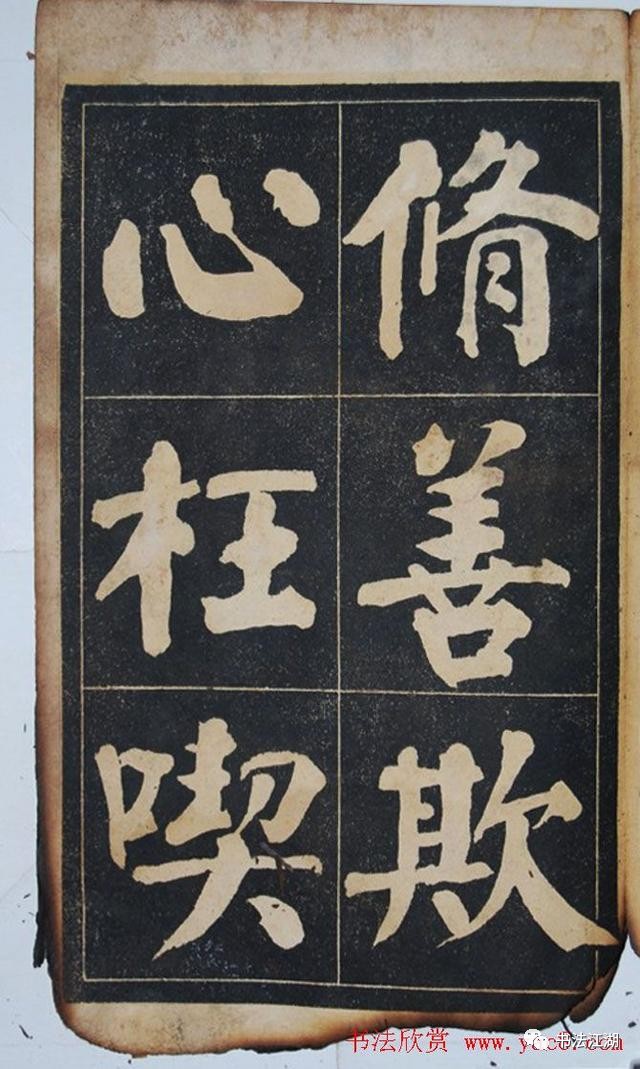 脩善欺
心枉喫
书法欣赏 www.yac8.com
书法江湖